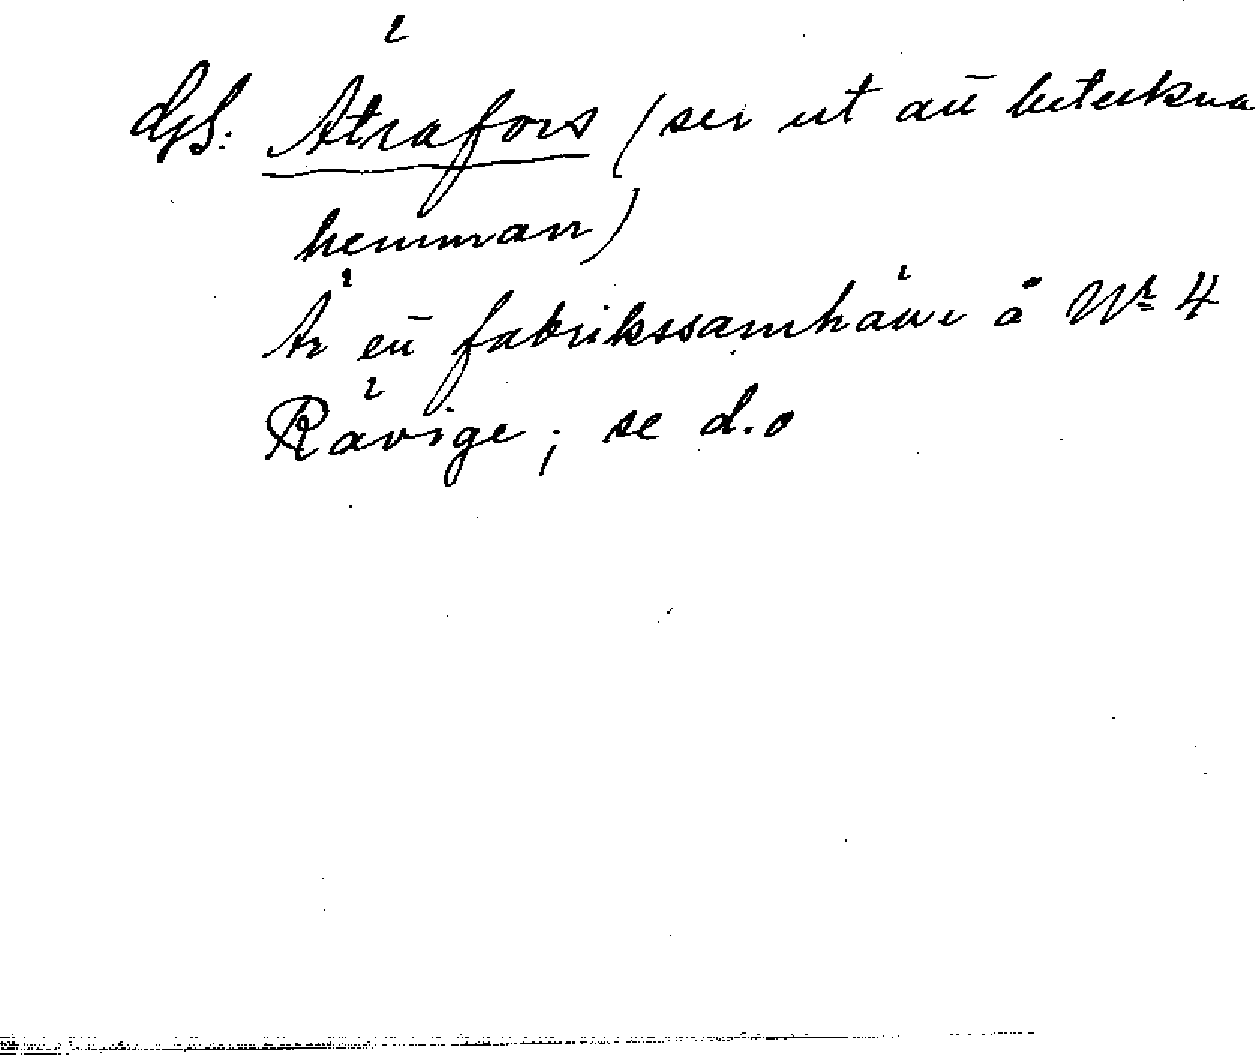 djb. Ätrafors (ser ut att beteckna
hemman)
Är ett fabrikssamhälle å Nr 4
Rävige; se d.o